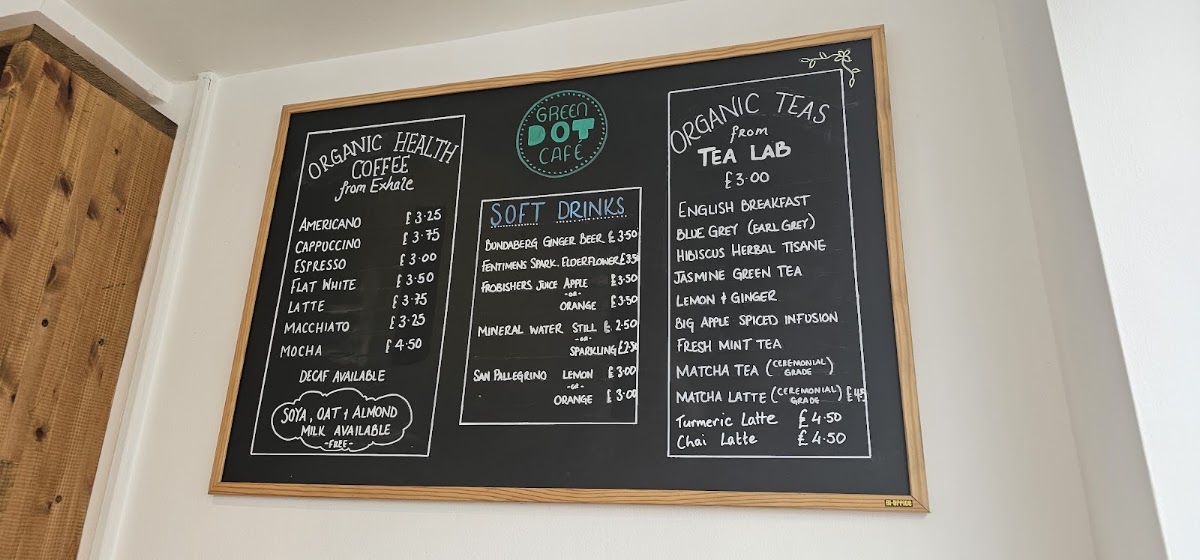 GREEN
DOT
CAFÉ
ORGANIC HEALTH
COFFEE
from Exhale
AMERICANO £3.25
CAPPUCCINO £3.75
ESPRESSO £3.00
FLAT WHITE £3.50
LATTE £3.75
MACCHIATO £3.25
MOCHA £4.50
DECAF AVAILABLE
SOYA, OAT + ALMOND
MILK AVAILABLE
-FREE-
SOFT DRINKS
BUNDABERG GINGER BEER £3.50
FENTIMENS SPARK. ELDERFLOWER £3.50
FROBISHERS JUICE APPLE £3.50
-or-
ORANGE £3.50
MINERAL WATER STILL £2.50
-or-
SPARKLING £2.50
SAN PALLEGRINO LEMON £3.00
-or-
ORANGE £3.00
ORGANIC TEAS
from
TEA LAB
£3.00
ENGLISH BREAKFAST
BLUE GREY (EARL GREY)
HIBISCUS HERBAL TISANE
JASMINE GREEN TEA
LEMON + GINGER
BIG APPLE SPICED INFUSION
FRESH MINT TEA
MATCHA TEA (CEREMONIAL GRADE)
MATCHA LATTE (CEREMONIAL GRADE)
Turmeric Latte £4.50
Chai Latte £4.50
BI-OFFICE